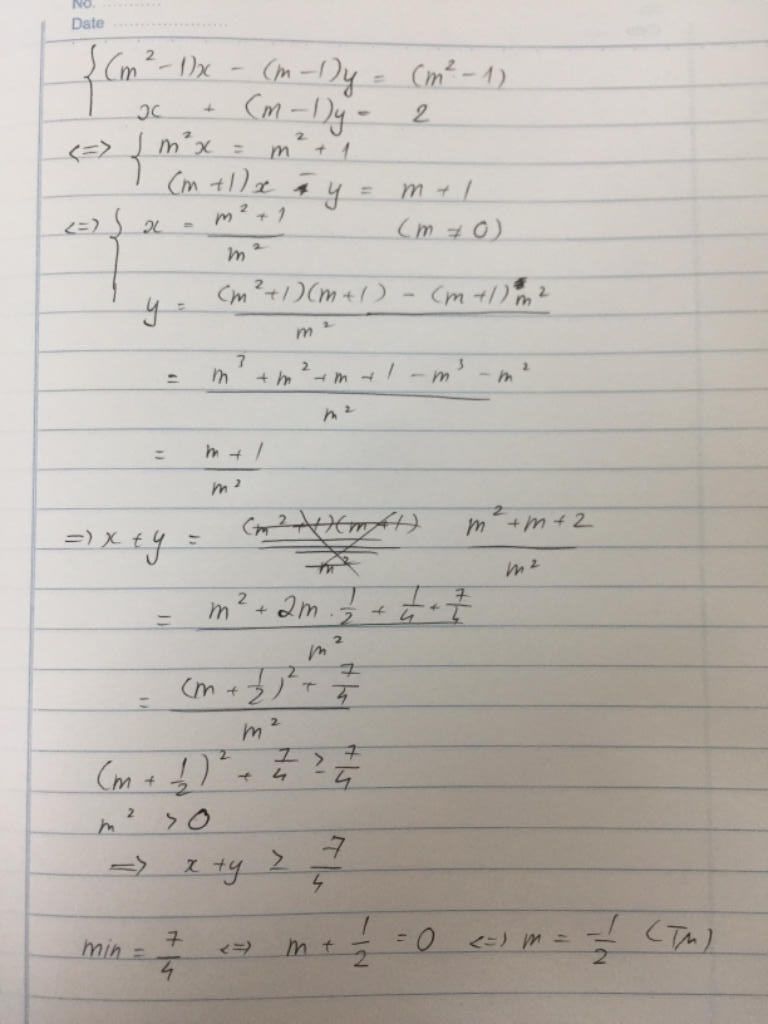 No. ..................
Date ........................
{ (m² - 1)x - (m - 1)y = (m² - 1)
x + (m - 1)y = 2
<=> { m²x = m² + 1
(m + 1)x - y = m + 1
<=> { x = \frac{m² + 1}{m²} (m ≠ 0)
y = \frac{(m² + 1)(m + 1) - (m + 1)m²}{m²}
= \frac{m³ + m² + m + 1 - m³ - m²}{m²}
= \frac{m + 1}{m²}
=> x + y = \frac{m² + m + 2}{m²}
= \frac{m² + 2m . \frac{1}{2} + \frac{1}{4} + \frac{7}{4}}{m²}
= \frac{(m + \frac{1}{2})² + \frac{7}{4}}{m²}
(m + \frac{1}{2})² + \frac{7}{4} ≥ \frac{7}{4}
m² > 0
=> x + y ≥ \frac{7}{4}
min = \frac{7}{4} <=> m + \frac{1}{2} = 0 <=> m = \frac{-1}{2} (TM)